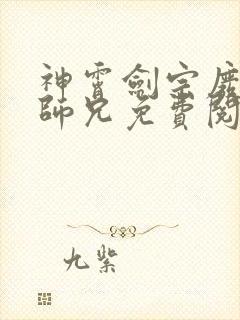 神霄劍宗廢
師兄免費閱
九紫